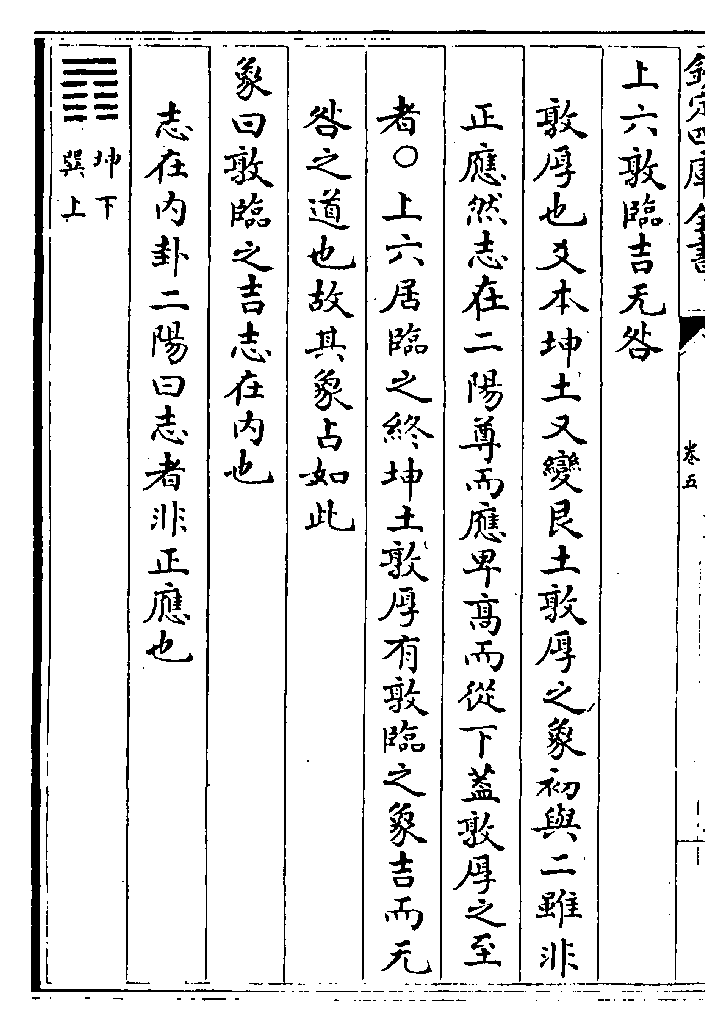 欽定四庫全書
卷五
上六敦臨吉无咎
敦厚也爻本坤土又變艮土敦厚之象初與二雖非
正應然志在二陽尊而應卑高而從下蓋敦厚之至
者○上六居臨之終坤土敦厚有敦臨之象吉而无
咎之道也故其象占如此
象曰敦臨之吉志在內也
志在內卦二陽曰志者非正應也
䷓坤下
巽上